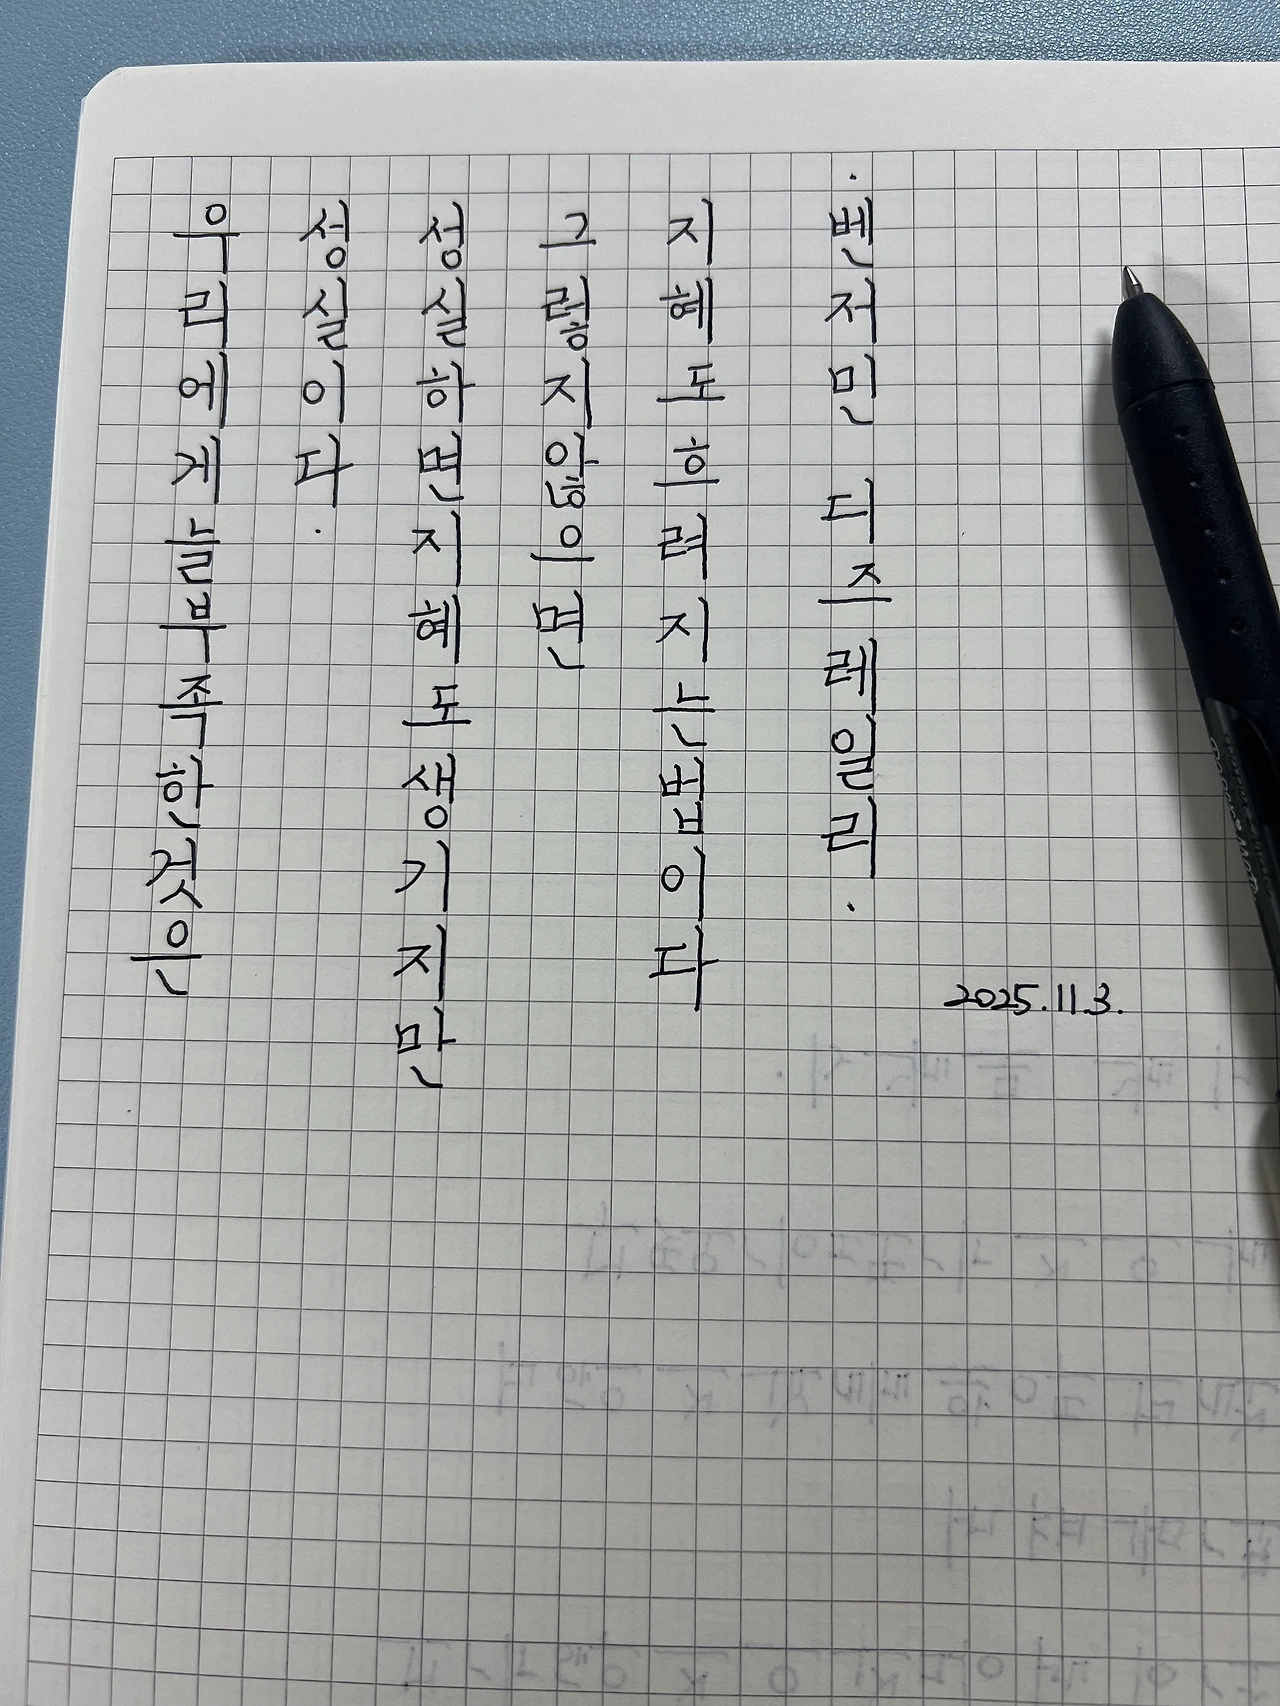 우리에게늘부족한것은
성실이다.
성실하면지혜도생기지만
그렇지않으면
지혜도흐려지는법이다
·벤저민 디즈레일리·
2025.11.3.